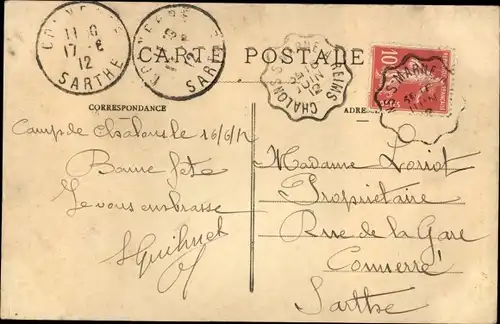 CONNERRÉ
11 - G
17 - 6
12
SARTHE
CONNERRÉ
12
SARTHE
CARTE POSTALE
CHALONS-S-MARNE
REIMS
JUIN
12
10
CORRESPONDANCE
ADRE
Camp de Châlons le 16/6/12
Bonne fête
Je vous embrasse
Madame Lorriot
Propriétaire
Rue de la Gare
Connerré
Sarthe